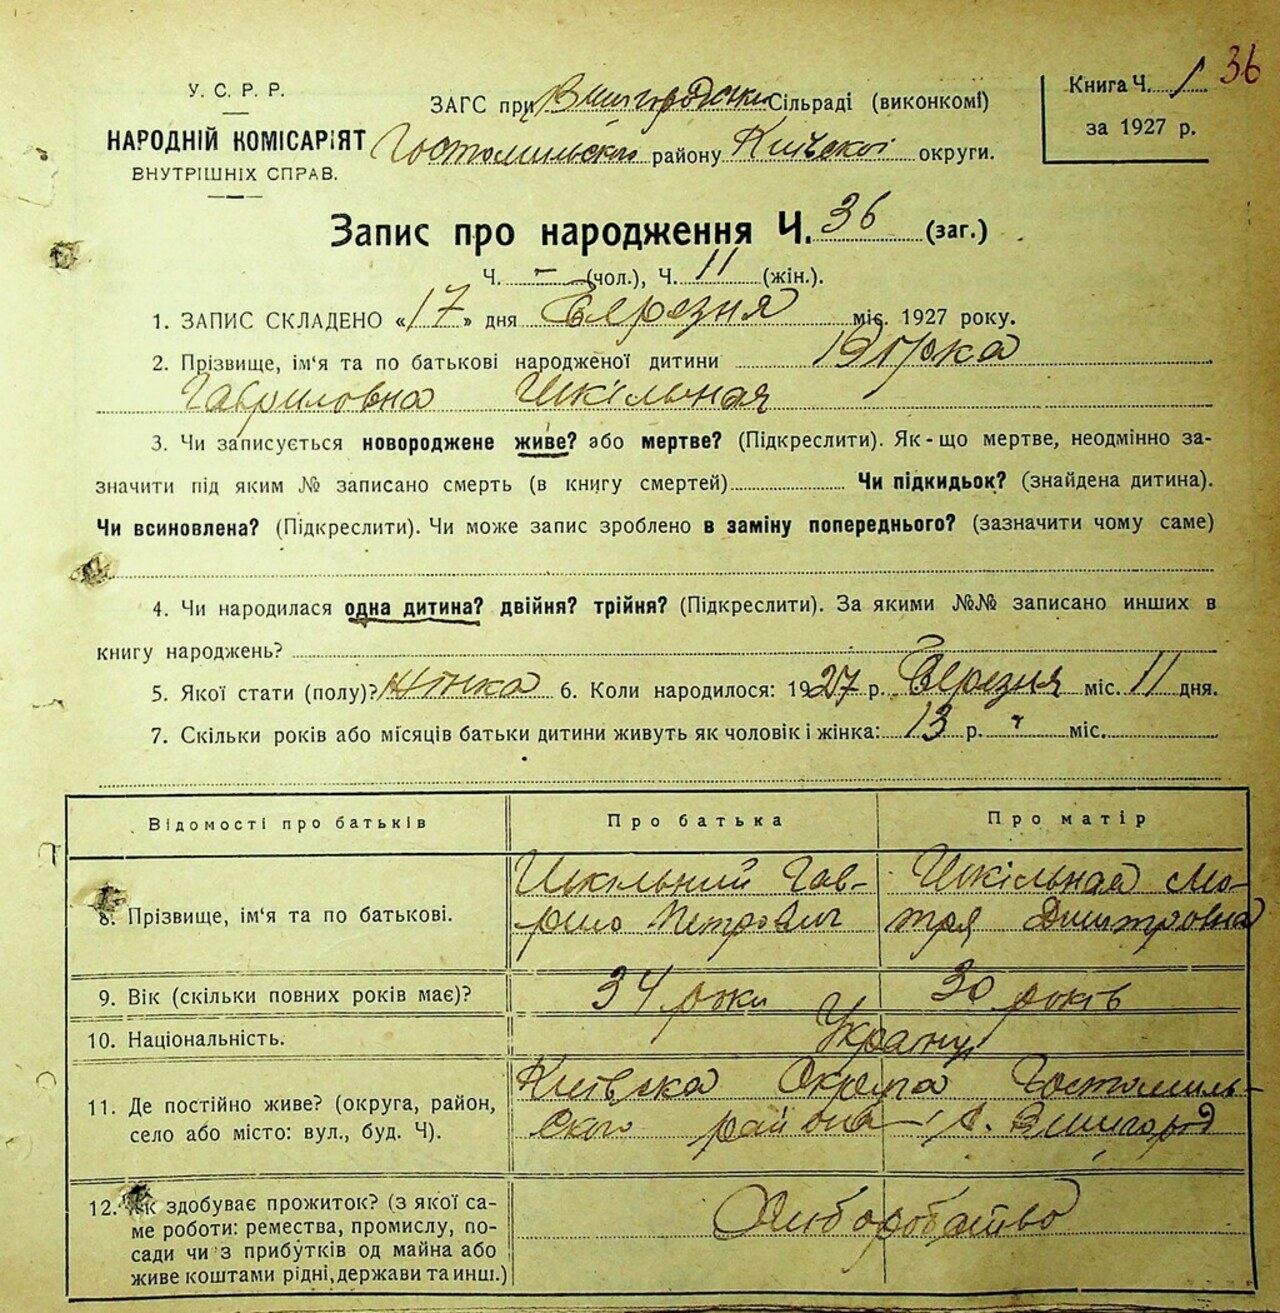 36
У. С. Р. Р.
НАРОДНІЙ КОМІСАРІЯТ
ВНУТРІШНІХ СПРАВ.
ЗАГС при Вишгородські Сільраді (виконкомі)
Гостомильского району Київскої округи.
Книга Ч. 1
за 1927 р.
Запис про народження Ч. 36 (заг.)
Ч. – (чол.), Ч. 11 (жін.).
1. ЗАПИС СКЛАДЕНО «17» дня Березня міс. 1927 року.
2. Прізвище, ім'я та по батькові народженої дитини
Гавриловна Шкільная
3. Чи записується новороджене живе? або мертве? (Підкреслити). Як-що мертве, неодмінно за-
значити під яким № записано смерть (в книгу смертей) Чи підкидьок? (знайдена дитина).
Чи всиновлена? (Підкреслити). Чи може запис зроблено в заміну попереднього? (зазначити чому саме)
4. Чи народилася одна дитина? двійня? трійня? (Підкреслити). За якими №№ записано инших в
книгу народжень?
5. Якої стати (полу)? жінка 6. Коли народилося: 1927 р. Березня міс. 11 дня.
7. Скільки років або місяців батьки дитини живуть як чоловік і жінка: 13 р. міс.
Відомості про батьків Про батька Про матір
8. Прізвище, ім'я та по батькові.
Шкільний Гав-
рило Петрович
Шкільная Мо-
тря Дмитровна
9. Вік (скільки повних років має)? 34 роки 30 років
10. Національність. Україн
11. Де постійно живе? (округа, район,
село або місто: вул., буд. Ч).
Київска Округа Гостомиль-
ского района с. Вишгород
12. Як здобуває прожиток? (з якої са-
ме роботи: ремества, промислу, по-
сади чи з прибутків од майна або
живе коштами рідні, держави та инш.)
Хліборобство